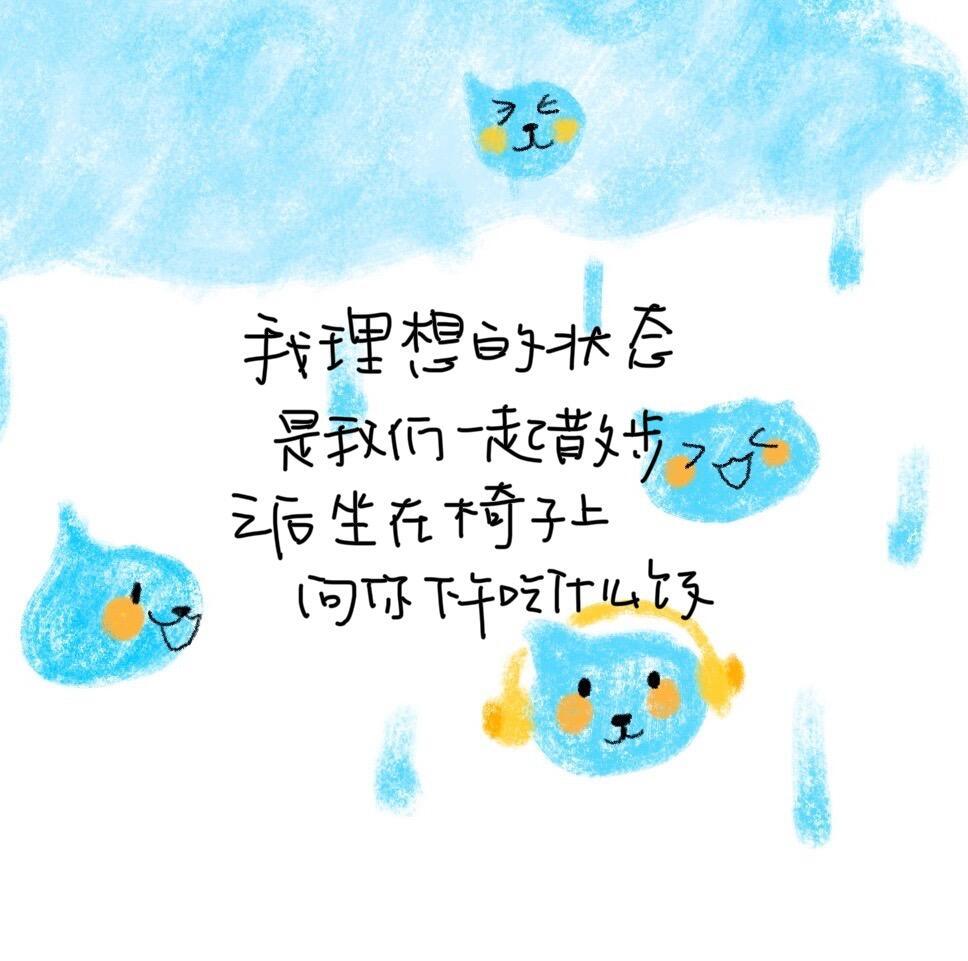 我理想的状态
是我们一起散步
之后坐在椅子上
问你下午吃什么饭